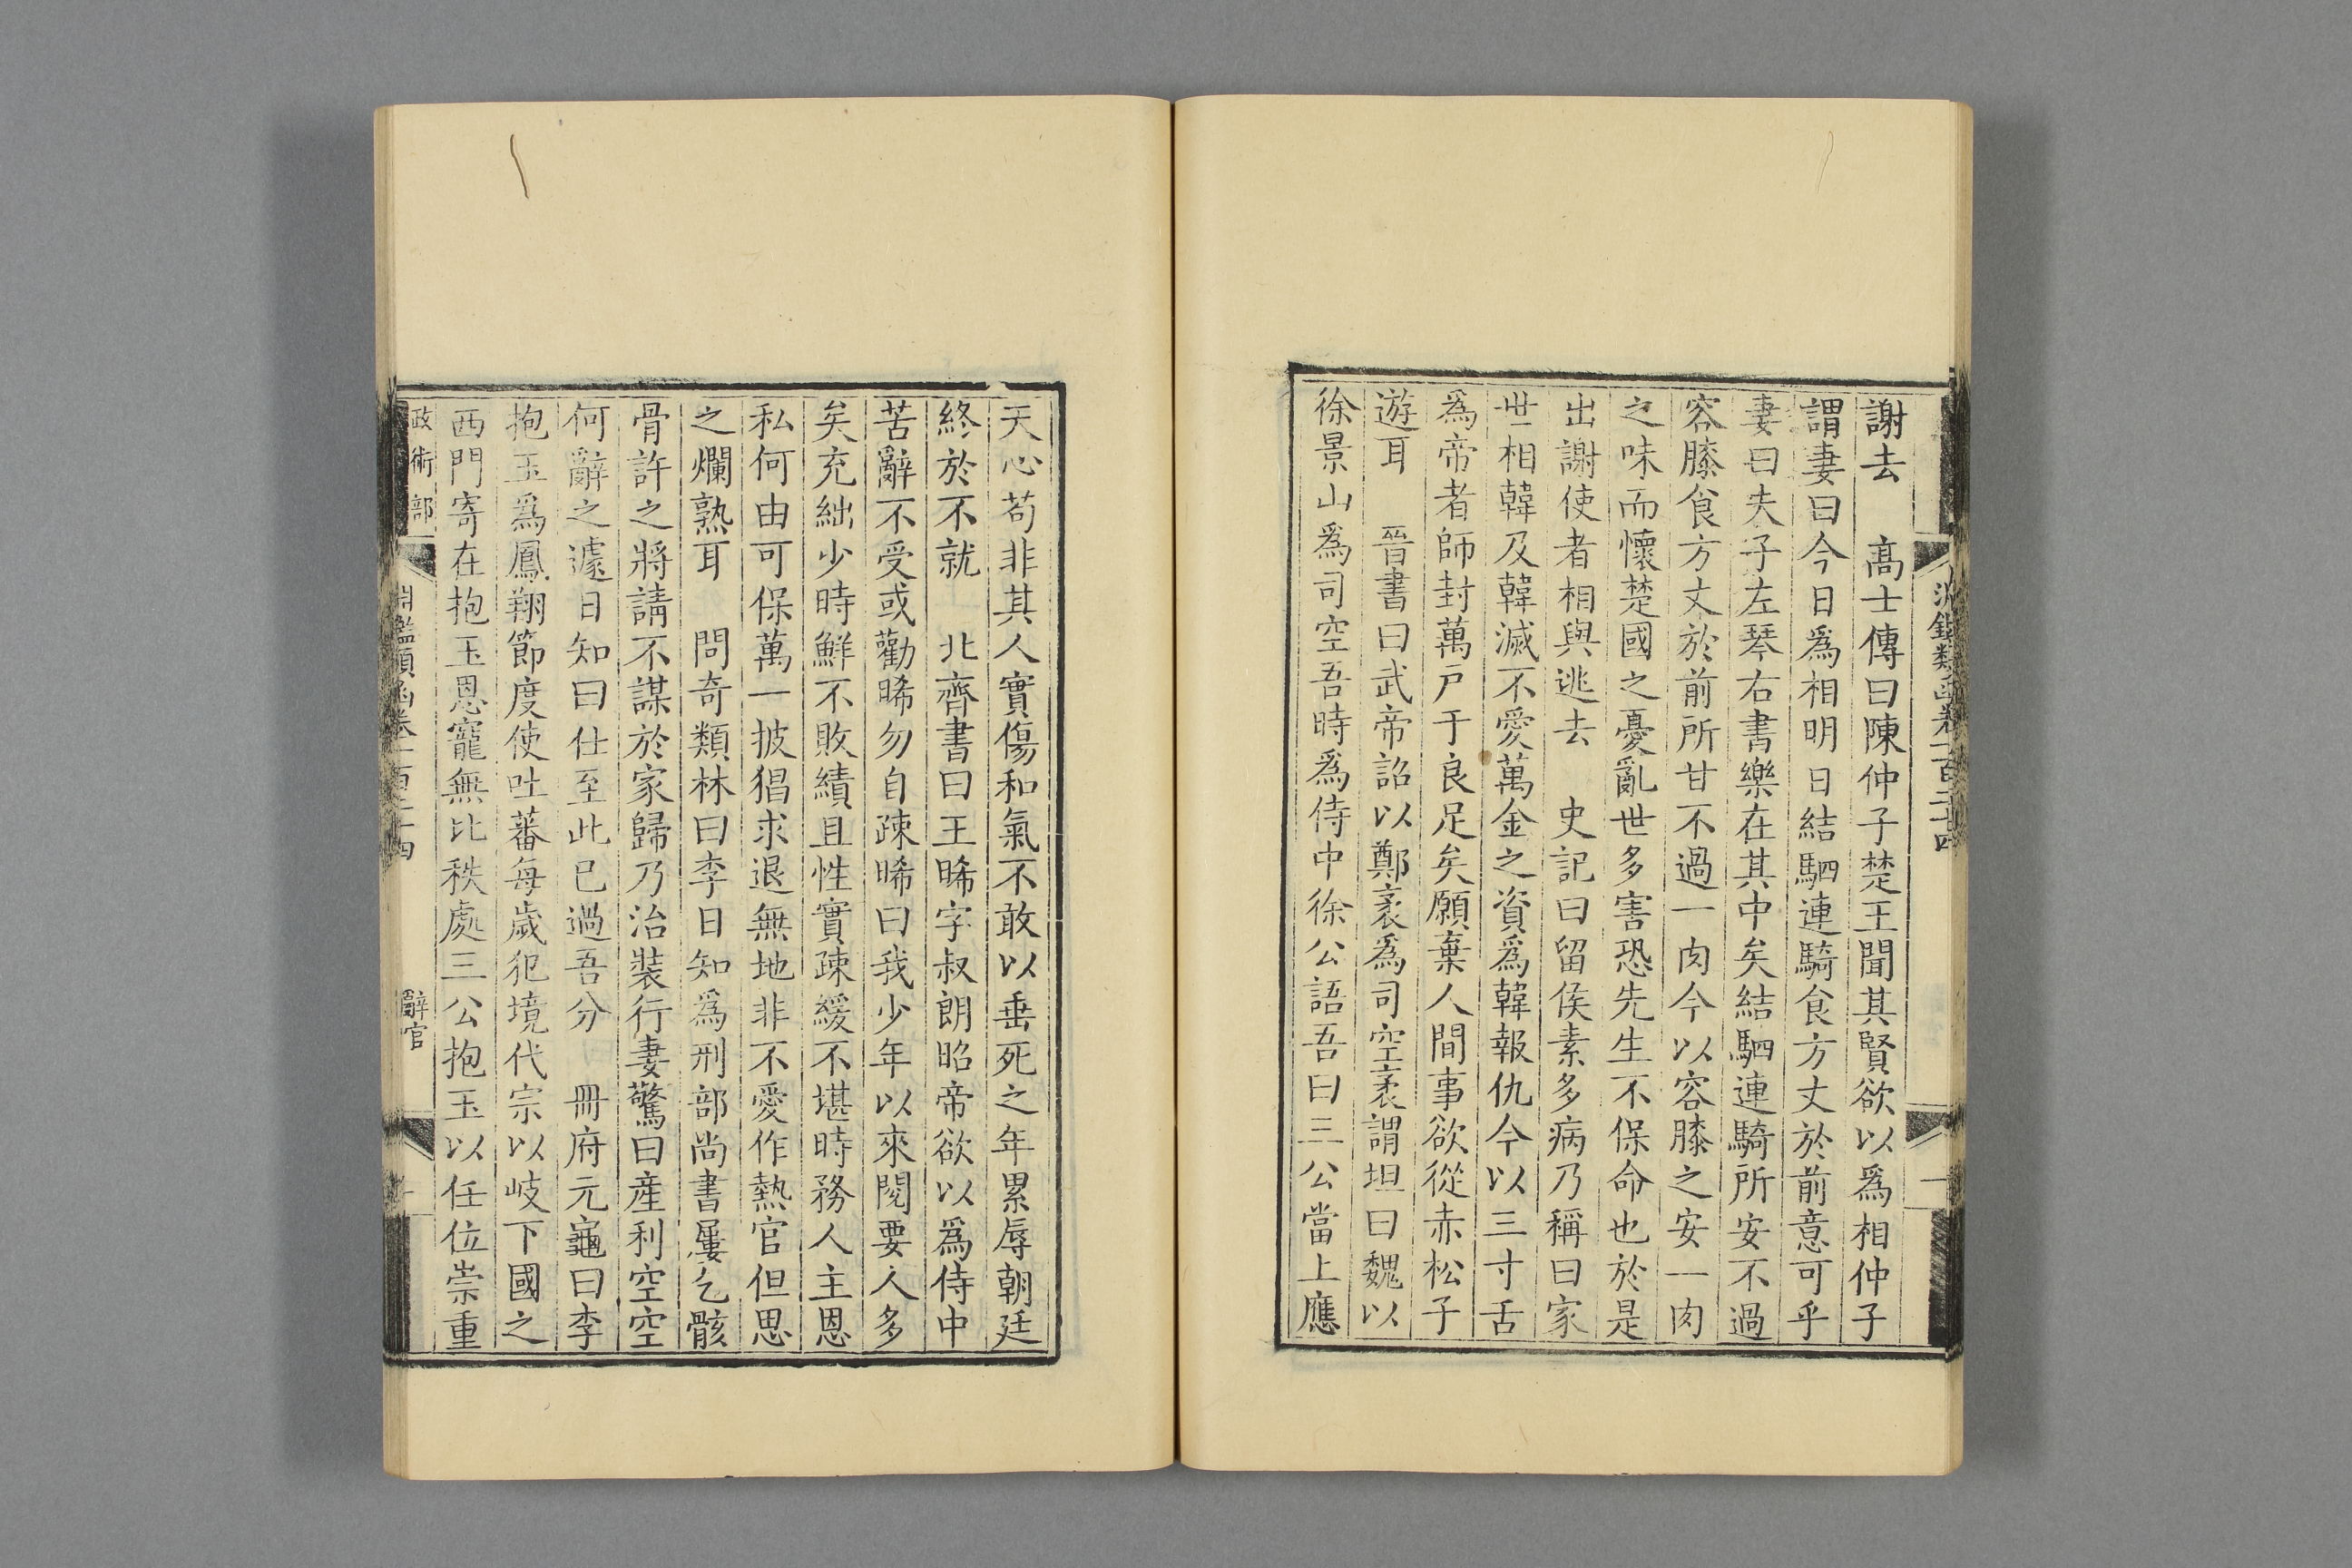 淵鑑類函卷一百二十四
一
謝去　高士傳曰陳仲子楚王聞其賢欲以爲相仲子
謂妻曰今日爲相明日結駟連騎食方丈於前意可乎
妻曰夫子左琴右書樂在其中矣結駟連騎所安不過
容膝食方丈於前所甘不過一肉今以容膝之安一肉
之味而懷楚國之憂亂世多害恐先生不保命也於是
出謝使者相與逃去　史記曰留侯素多病乃稱曰家
世相韓及韓滅不愛萬金之資爲韓報仇今以三寸舌
爲帝者師封萬戸于良足矣願棄人間事欲從赤松子
遊耳　晉書曰武帝詔以鄭袤爲司空袤謂坦曰魏以
徐景山爲司空吾時爲侍中徐公語吾曰三公當上應
天心苟非其人實傷和氣不敢以垂死之年累辱朝廷
終於不就　北齊書曰王晞字叔朗昭帝欲以爲侍中
苦辭不受或勸晞勿自疎晞曰我少年以來閱要人多
矣充絀少時鮮不敗績且性實疎緩不堪時務人主恩
私何由可保萬一披猖求退無地非不愛作熱官但思
之爛熟耳　問奇類林曰李日知爲刑部尚書屢乞骸
骨許之將請不謀於家歸乃治裝行妻驚曰産利空空
何辭之遽日知曰仕至此已過吾分　冊府元龜曰李
抱玉爲鳳翔節度使吐蕃每歲犯境代宗以岐下國之
西門寄在抱玉恩寵無比秩處三公抱玉以任位崇重
政術部
淵鑑類函卷一百二十四
辭官